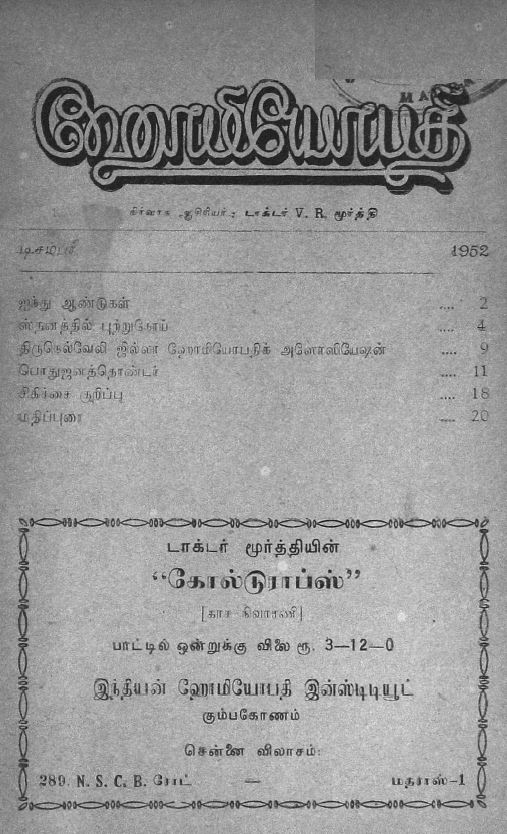 ஹோமியோபதி
நிர்வாக ஆசிரியர்: டாக்டர் V. R. மூர்த்தி
டிசம்பர் 1952
ஐந்து ஆண்டுகள் .... 2
ஸ்தனத்தில் புற்றுநோய் .... 4
திருநெல்வேலி ஜில்லா ஹோமியோபதிக் அஸோஸியேஷன் .... 9
பொதுஜனத்தொண்டர் .... 11
சிகிச்சை குறிப்பு .... 18
மதிப்புரை .... 20
டாக்டர் மூர்த்தியின்
“கோல்டுராப்ஸ்”
[காச நிவாரணி]
பாட்டில் ஒன்றுக்கு விலை ரூ. 3—12—0
இந்தியன் ஹோமியோபதி இன்ஸ்டிடியூட்
கும்பகோணம்
சென்னை விலாசம்:
289. N. S. C. B. ரோட் — மதராஸ்-1